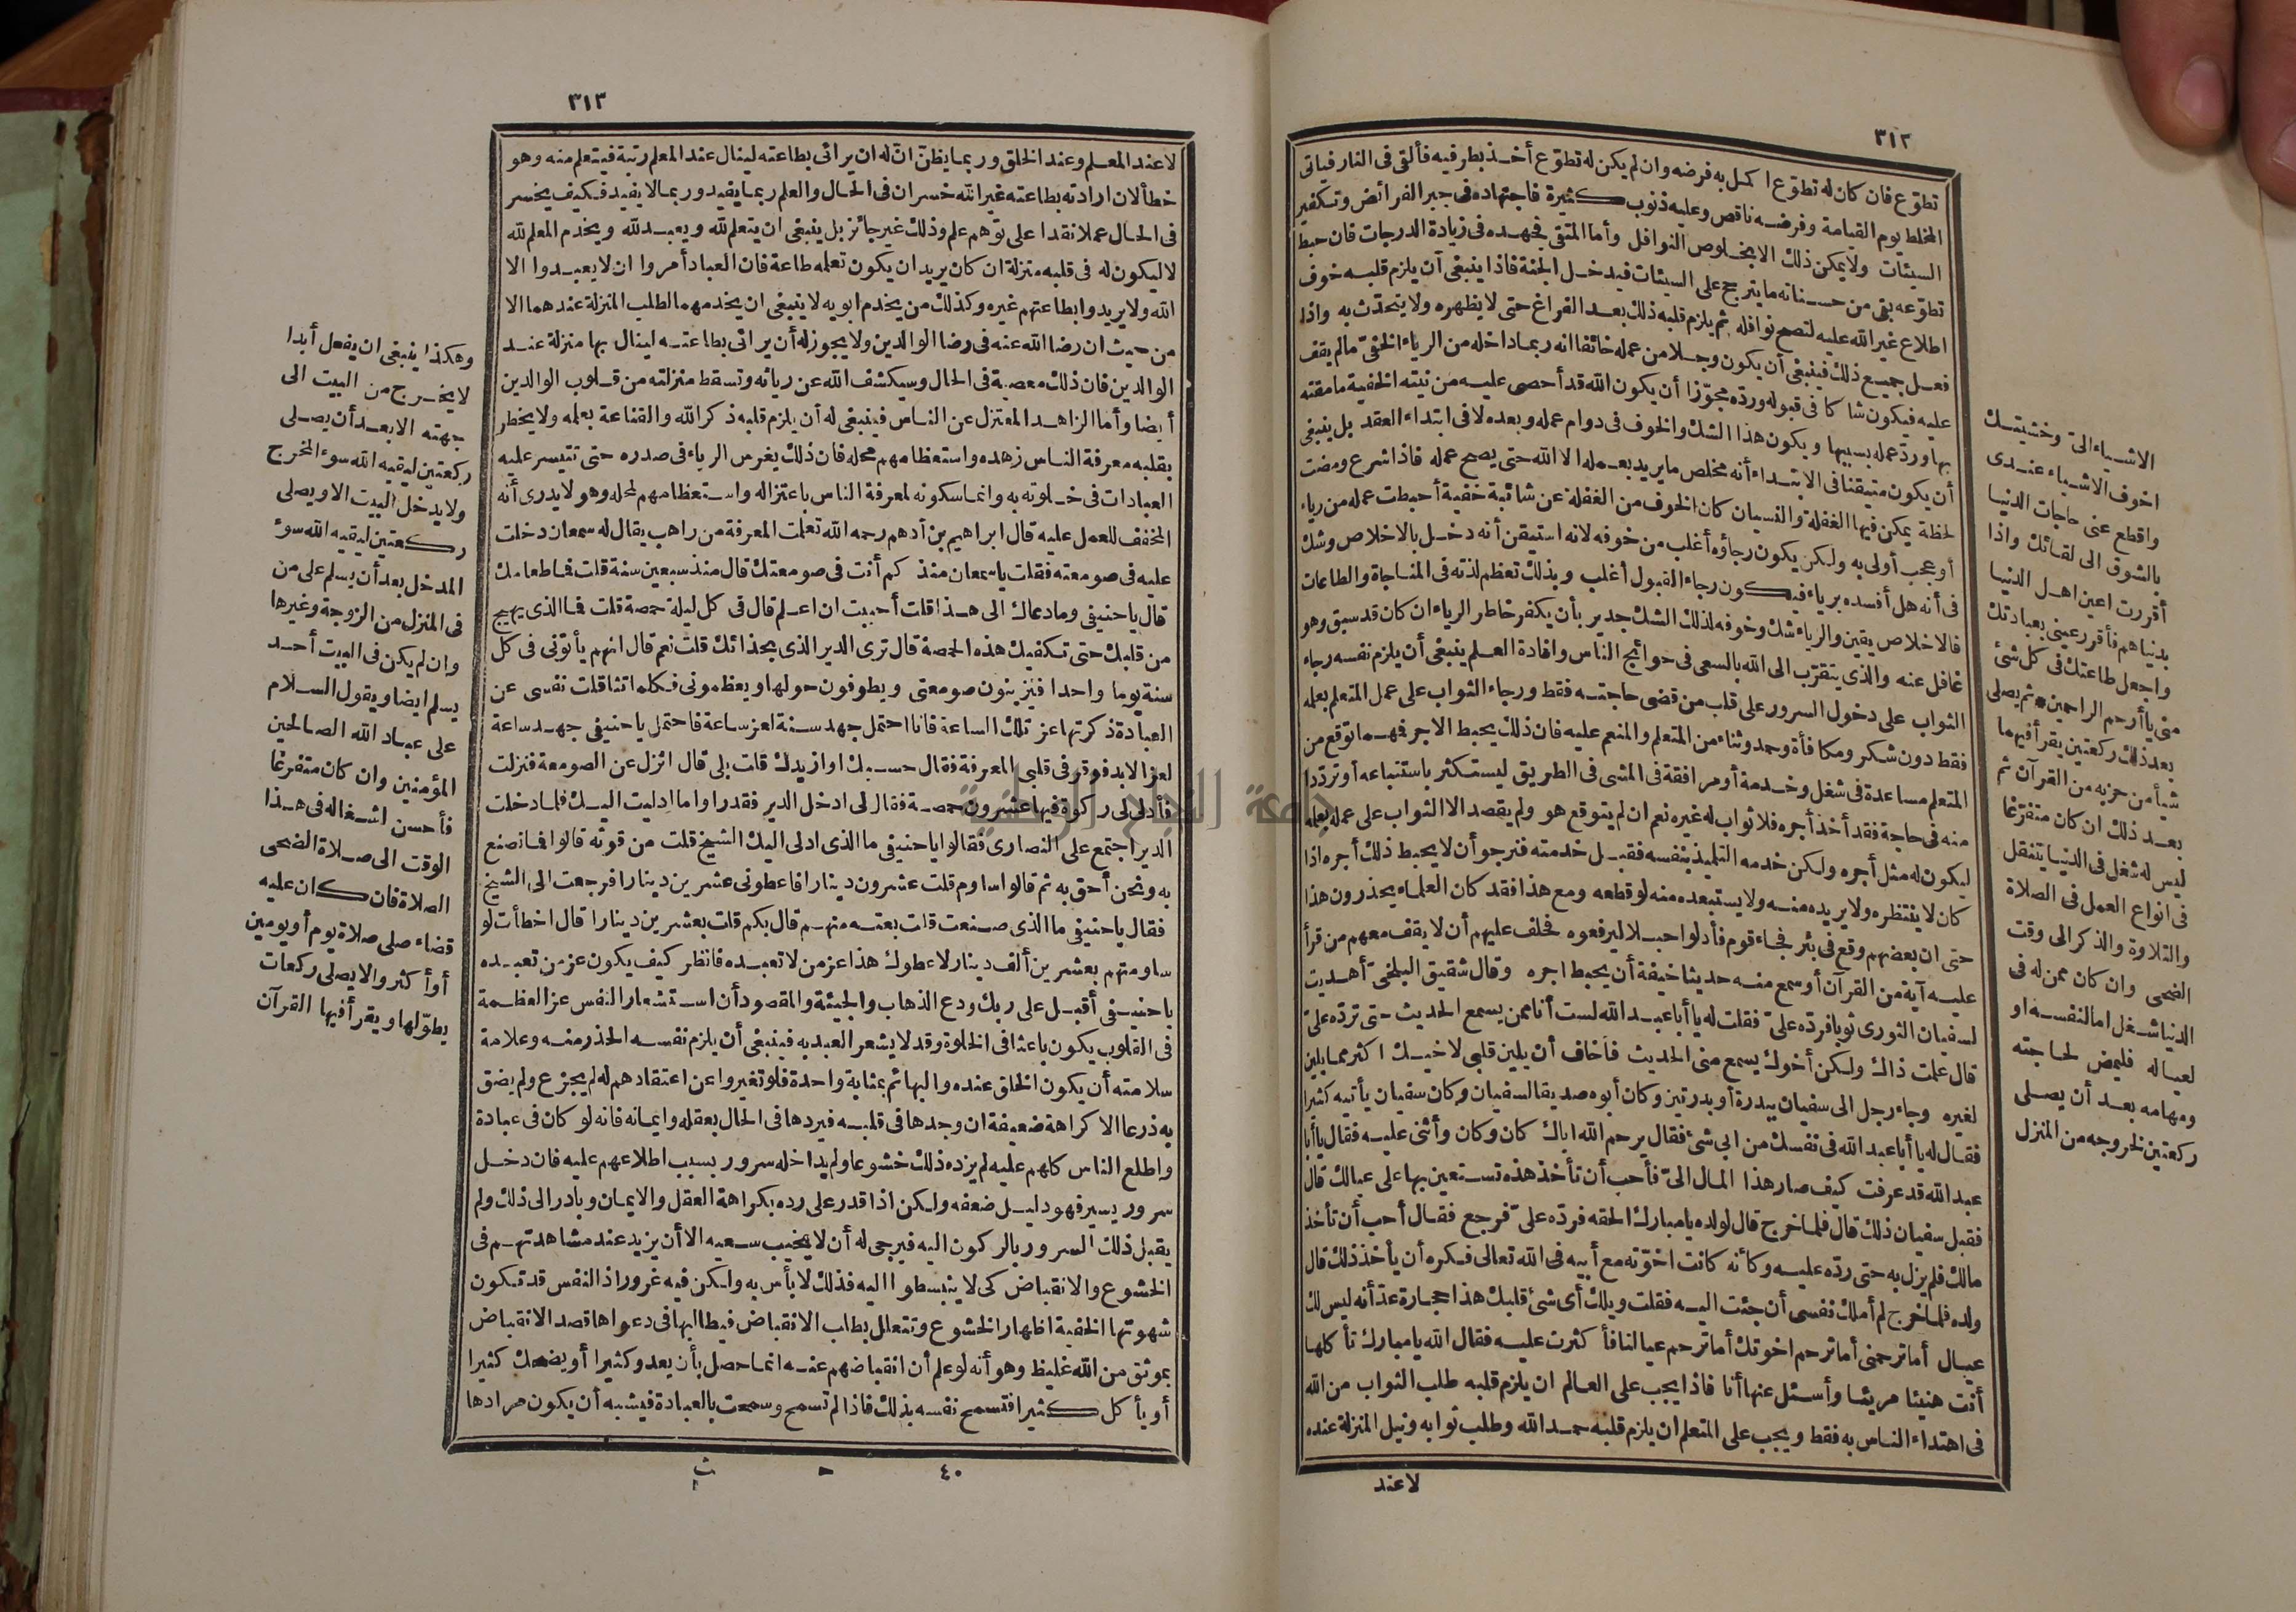 ٣١٢
تطوّع فان كان له تطوّع اكمل به فرضه وان لم يكن له تطوّع أخذ بطرفيه فألقى فى النار فيأتى
المخلط يوم القيامة وفرضه ناقص وعليه ذنوب كثيرة فاجتهاده فى جبر الفرائض وتكفير
السيئات ولا يمكن ذلك الا بخلوص النوافل وأما المتقى فجهده فى زيادة الدرجات فان حبط
تطوّعه بقى من حسناته ما يترجح على السيئات فيدخل الجنة فاذا ينبغى أن يلزم قلبه خوف
اطلاع غير الله عليه لتصح نوافله ثم يلزم قلبه ذلك بعد الفراغ حتى لا يظهره ولا يتحدّث به واذا
فعل جميع ذلك فينبغى أن يكون وجلا من عمله خائفا انه ربما داخله من الرياء الخفىّ مالم يقف
عليه فيكون شاكا فى قبوله وردّه مجوّزا أن يكون الله قد أحصى عليه من نيته الخفية ما مقته
بها وردّ عمله بسببها ويكون هذا الشك والخوف فى دوام عمله وبعده لا فى ابتداء العقد بل ينبغى
أن يكون متيقنا فى الابتداء أنه مخلص ما يريد بعمله الا الله حتى يصح عمله فاذا شرع ومضت
لحظة يمكن فيها الغفلة والنسيان كان الخوف من الغفلة عن شائبة خفية أحبطت عمله من رياء
أو عجب أولى به ولكن يكون رجاؤه أغلب من خوفه لانه استيقن أنه دخل بالاخلاص وشك
فى أنه هل أفسده برياء فيكون رجاء القبول أغلب وبذلك تعظم لذته فى المناجاة والطاعات
فالاخلاص يقين والرياء شك وخوفه لذلك الشك جدير بأن يكفر خاطر الرياء ان كان قد سبق وهو
غافل عنه والذى يتقرّب الى الله بالسعى فى حوائج الناس وافادة العلم ينبغى أن يلزم نفسه رجاء
الثواب على دخول السرور على قلب من قضى حاجته فقط ورجاء الثواب على عمل المتعلم بعلمه
فقط دون شكر ومكافأة وحمد وثناء من المتعلم والمنعم عليه فان ذلك يحبط الاجر فهما توقع من
المتعلم مساعدة فى شغل وخدمة أو مرافقة فى المشى فى الطريق ليستكثر باستتباعه أو تردّدا
منه فى حاجة فقد أخذ أجره فلا ثواب له غيره نعم ان لم يتوقع هو ولم يقصد الا الثواب على عمله بعلمه
ليكون له مثل أجره ولكن خدمه التلميذ بنفسه فقبل خدمته فنرجو أن لا يحبط ذلك أجره اذا
كان لا ينتظره ولا يريده منه ولا يستبعده منه لو قطعه ومع هذا فقد كان العلماء يحذرون هذا
حتى ان بعضهم وقع فى بئر فجاء قوم فأدلوا حبلا ليرفعوه فحلف عليهم أن لا يقف معهم من قرأ
عليه آية من القرآن أو سمع منه حديثا خيفة أن يحبط اجره وقال شقيق البلخىّ أهديت
لسفيان الثورى ثوبا فردّه علىّ فقلت له يا أبا عبد الله لست أنا ممن يسمع الحديث حتى تردّه علىّ
قال علمت ذاك ولكن أخوك يسمع منى الحديث فأخاف أن يلين قلبى لاخيك اكثر مما يلين
لغيره وجاء رجل الى سفيان ببدرة أو بدرتين وكان أبوه صديقا لسفيان وكان سفيان يأتيه كثيرا
فقال له يا أبا عبد الله فى نفسك من ابى شئ فقال يرحم الله اباك كان وكان وأثنى عليه فقال يا أبا
عبد الله قد عرفت كيف صار هذا المال الىّ فأحب أن تأخذ هذه تستعين بها على عيالك قال
فقبل سفيان ذلك قال فلما خرج قال لولده يا مبارك الحقه فردّه علىّ فرجع فقال أحب أن تأخذ
مالك فلم يزل به حتى ردّه عليه وكأنه كانت اخوّته مع أبيه فى الله تعالى فكره أن يأخذ ذلك قال
ولده فلما خرج لم أملك نفسى أن جئت اليه فقلت ويلك أى شئ قلبك هذا حجارة عدّ أنه ليس لك
عيال أما ترحمنى أما ترحم اخوتك أما ترحم عيالنا فأكثرت عليه فقال الله يا مبارك تأكلها
أنت هنيئا مريئا وأسئل عنها أنا فاذا يجب على العالم ان يلزم قلبه طلب الثواب من الله
فى اهتداء الناس به فقط ويجب على المتعلم ان يلزم قلبه حمد الله وطلب ثوابه ونيل المنزلة عنده
لا عند
الاشياء الىّ وخشيتك
اخوف الاشياء عندى
واقطع عنى حاجات الدنيا
بالشوق الى لقائك واذا
أقررت اعين اهل الدنيا
بدنياهم فأقرر عينى بعبادتك
واجعل طاعتك فى كل شئ
منى يا أرحم الراحمين ثم يصلى
بعد ذلك ركعتين يقرأ فيهما
شيأ من حزبه من القرآن ثم
بعد ذلك ان كان متفرّغا
ليس له شغل فى الدنيا يتنقل
فى انواع العمل فى الصلاة
والتلاوة والذكر الى وقت
الضحى وان كان ممن له فى
الدنيا شغل اما لنفسه او
لعياله فليمض لحاجته
ومهامه بعد أن يصلى
ركعتين لخروجه من المنزل
٣١٣
لا عند المعلم وعند الخلق وربما يظنّ انّ له ان يرائى بطاعته لينال عند المعلم رتبة فيتعلم منه وهو
خطأ لان ارادته بطاعته غير الله خسران فى الحال والعلم ربما يفيد وربما لا يفيد فكيف يخسر
فى الحال عملا نقدا على توهم علم وذلك غير جائز بل ينبغى ان يتعلم لله ويعبد لله ويخدم المعلم لله
لا ليكون له فى قلبه منزلة ان كان يريد ان يكون تعلمه طاعة فان العباد أمروا ان لا يعبدوا الا
الله ولا يريدوا بطاعتهم غيره وكذلك من يخدم ابويه لا ينبغى ان يخدمهما لطلب المنزلة عندهما الا
من حيث ان رضا الله عنه فى رضا الوالدين ولا يجوز له أن يرائى بطاعته لينال بها منزلة عند
الوالدين فان ذلك معصية فى الحال وسيكشف الله عن ريائه وتسقط منزلته من قلوب الوالدين
أيضا وأما الزاهد المعتزل عن الناس فينبغى له أن يلزم قلبه ذكر الله والقناعة بعلمه ولا يخطر
بقلبه معرفة الناس زهده واستعظامهم محله فان ذلك يغرس الرياء فى صدره حتى تتيسر عليه
العبادات فى خلوته به وانما سكونه لمعرفة الناس باعتزاله واستعظامهم لمحله وهو لا يدرى أنه
المخفف للعمل عليه قال ابراهيم بن أدهم رحمه الله تعلمت المعرفة من راهب يقال له سمعان دخلت
عليه فى صومعته فقلت يا سمعان منذ كم أنت فى صومعتك قال منذ سبعين سنة قلت فما طعامك
قال يا حنيفى وما دعاك الى هذا قلت أحببت ان اعلم قال فى كل ليلة حمصة قلت فما الذى يهيج
من قلبك حتى تكفيك هذه الحمصة قال ترى الدير الذى بحذائك قلت نعم قال انهم يأتونى فى كل
سنة يوما واحدا فيزينون صومعتى ويطوفون حولها ويعظمونى فكلما تثاقلت نفسى عن
العبادة ذكرتها عز تلك الساعة فانا احتمل جهد سنة لعز ساعة فاحتمل يا حنيفى جهد ساعة
لعز الابد فوقر فى قلبى المعرفة فقال حسبك او ازيدك قلت بلى قال انزل عن الصومعة فنزلت
فأدلى لى ركوة فيها عشرون حمصة فقال لى ادخل الدير فقد راوا ما ادليت اليك فلما دخلت
الدير اجتمع على النصارى فقالوا يا حنيفى ما الذى ادلى اليك الشيخ قلت من قوته قالوا فما تصنع
به ونحن أحق به ثم قالوا ساوم قلت عشرون دينارا فاعطونى عشرين دينارا فرجعت الى الشيخ
فقال يا حنيفى ما الذى صنعت قلت بعته منهم قال بكم قلت بعشرين دينارا قال اخطأت لو
ساومتهم بعشرين ألف دينار لاعطوك هذا عز من لا تعبده فانظر كيف يكون عز من تعبده
يا حنيفى أقبل على ربك ودع الذهاب والجيئة والمقصود أن استشعار النفس عز العظمة
فى القلوب يكون باعثا فى الخلوة وقد لا يشعر العبد به فينبغى أن يلزم نفسه الحذر منه وعلامة
سلامته أن يكون الخلق عنده والبهائم بمثابة واحدة فلو تغيروا عن اعتقادهم له لم يجزع ولم يضق
به ذرعا الا كراهة ضعيفة ان وجدها فى قلبه فيردها فى الحال بعقله وايمانه فانه لو كان فى عبادة
واطلع الناس كلهم عليه لم يزده ذلك خشوعا ولم يداخله سرور بسبب اطلاعهم عليه فان دخل
سرور يسير فهو دليل ضعفه ولكن اذا قدر على رده بكراهة العقل والايمان وبادر الى ذلك ولم
يقبل ذلك السرور بالركون اليه فيرجى له أن لا يخيب سعيه الا أن يزيد عند مشاهدتهم فى
الخشوع والانقباض كى لا ينبسطوا اليه فذلك لا بأس به ولكن فيه غرور اذ النفس قد تكون
شهوتها الخفية اظهار الخشوع وتتعلل بطلب الانقباض فيطالبها فى دعواها قصد الانقباض
بموثق من الله غليظ وهو أنه لو علم أن انقباضهم عنه انما حصل بأن يعدو كثيرا أو يضحك كثيرا
أو يأكل كثيرا فتسمح نفسه بذلك فاذا لم تسمح وسمحت بالعبادة فيشبه أن يكون مرادها
٤٠ ح ث
وهكذا ينبغى ان يفعل أبدا
لا يخرج من البيت الى
جهته الا بعد أن يصلى
ركعتين ليقيه الله سوء المخرج
ولا يدخل البيت الا ويصلى
ركعتين ليقيه الله سوء
المدخل بعد أن يسلم على من
فى المنزل من الزوجة وغيرها
وان لم يكن فى البيت أحد
يسلم ايضا ويقول السلام
على عباد الله الصالحين
المؤمنين وان كان متفرغا
فأحسن اشغاله فى هذا
الوقت الى صلاة الضحى
الصلاة فان كان عليه
قضاء صلى صلاة يوم أو يومين
أو أكثر والا يصلى ركعات
يطوّلها ويقرأ فيها القرآن
جامعة النجاح الوطنية